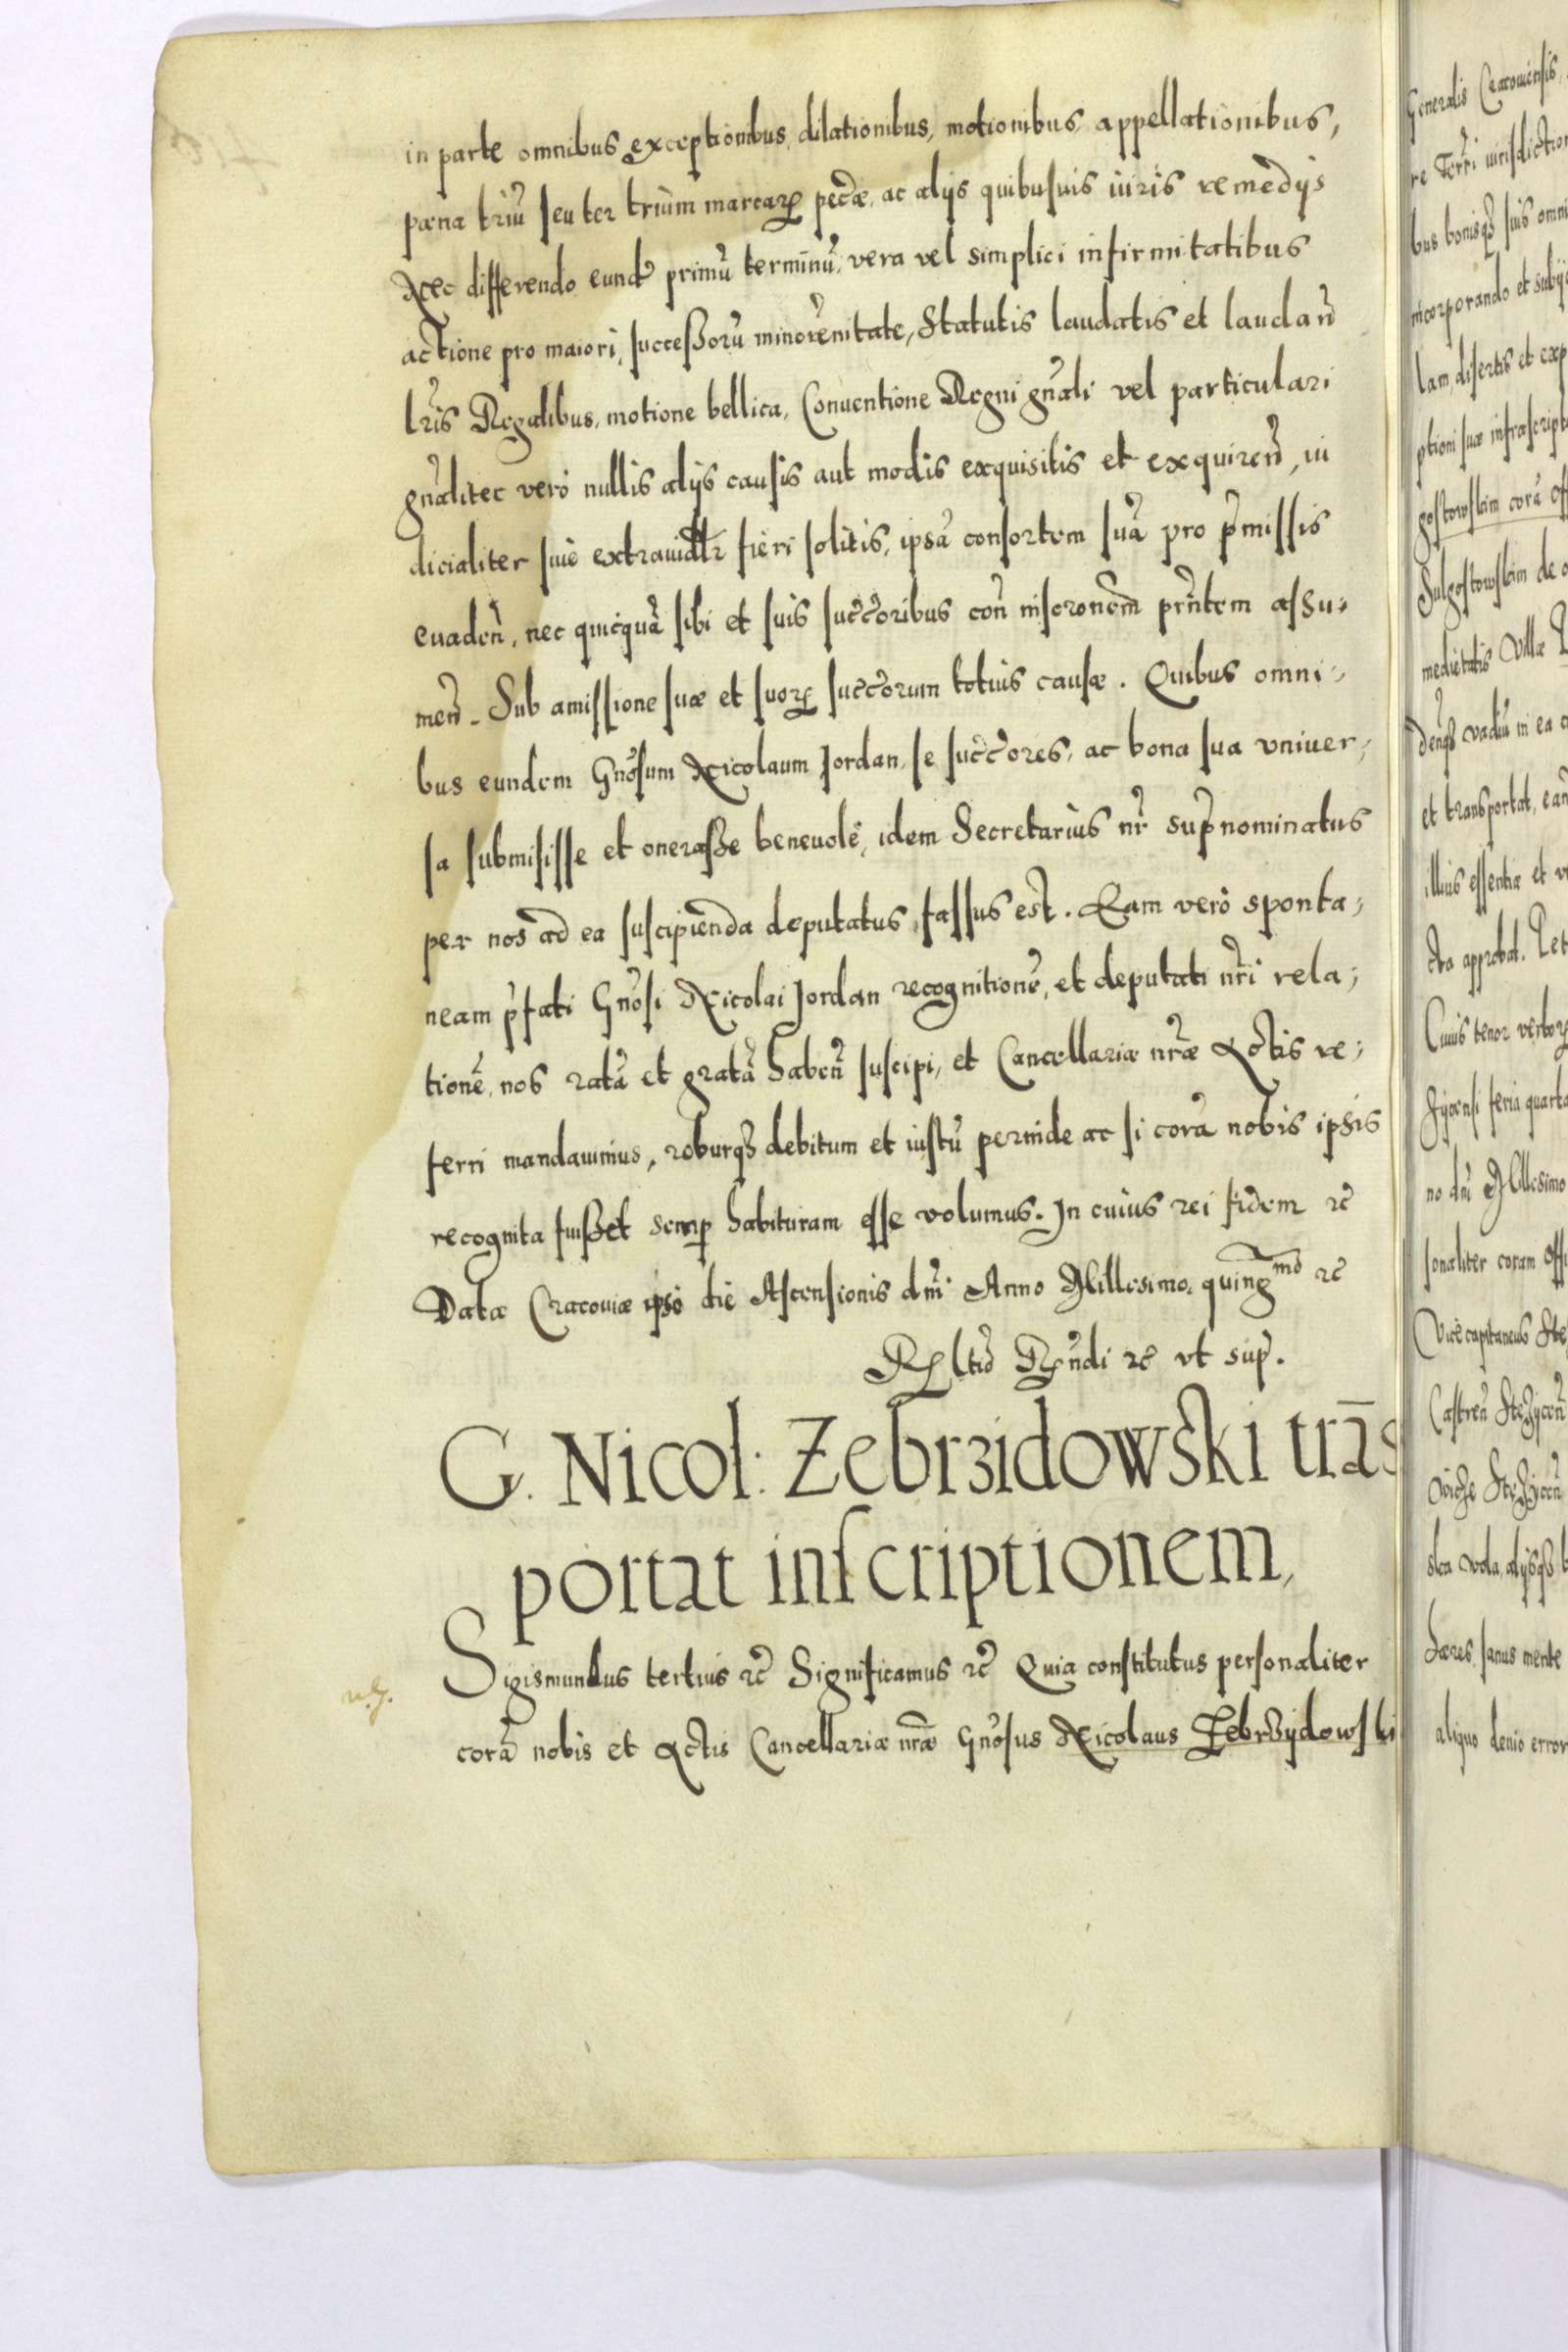 in parte omnibus exceptionibus, dilationibus, motionibus, appellationibus,
pæna triũ seu ter trium marcarꝝ pecũæ, ac alijs quibusuis iuris remedijs
Nec differendo eund primũ terminũ, vera vel simplici infirmitatibus
actione pro maiori, successorũ minorẽnitate, Statutis laudatis et laudan̄
lr̃is Regalibus, motione bellica, Conuentione Regni gñali vel particulari
gñaliter vero nullis alijs causis aut modis exquisitis et exquiren̄, iu
dicialiter siue extraiudlr fieri solitis, ipsã consortem suã pro p̃missis
euaden̄, nec quicquã sibi et suis succ̃oribus con̄ inscr̃onem prñtem assu⸗
men̄. Sub amissione suæ et suorꝝ succ̃orum totius causæ. Quibus omni⸗
bus eundem Gñosum Nicolaum Jordan, se succ̃ores, ac bona sua vniuer⸗
sa submisisse et onerasse beneuole, idem Secretarius nr̃ sup̃nominatus
per nos ad ea suscipienda deputatus, fassus est. Eam vero sponta⸗
neam p̃fati Gñosi Nicolai Jordan recognitionẽ, et deputati nr̃i rela⸗
tionẽ, nos ratã et gratã haben̄ suscipi, et Cancellariæ nr̃æ Actis re⸗
ferri mandauimus, roburqꝫ debitum et iustũ perinde ac si corã nobis ipsis
recognita fuisset semꝑ habituram esse volumus. In cuius rei fidem ꝛc̃
Datæ Cracouiæ ipso die Ascensionis dñi Anno Millesimo, quing̃mo ꝛc̃
Rltio Rñdi ꝛc̃ vt sup̃.
G. Nicol: Zebrzidowski trãs
portat inscriptionem,
Sigismundus tertius ꝛc̃ Significamus ꝛc̃ Quia constitutus personaliter
corã nobis et Actis Cancellariæ nr̃æ Gñosus Nicolaus Zebrzydowski
Generalis Cracouiensis,
re Terri iurisdiction
bus bonisqꝫ suis omni
incorporando et subij
lam, disertis et exp
ptioni suæ infrascript
gostowskim corã off
Sulgostowskim de
medietatis Villæ
denqꝫ vadiũ in ea
et transportat, ean
illius essentiæ et v
cta approbat. Pet
Cuius tenor verborꝝ
feria quarta
no dñi Millesimo
sonaliter coram offi
Vice capitaneus Ste
Castren̄ Stezijcen̄
Stezijcen̄
ska wola, alijsqꝫ b
hæres, sanus mente
aliquo deuio error